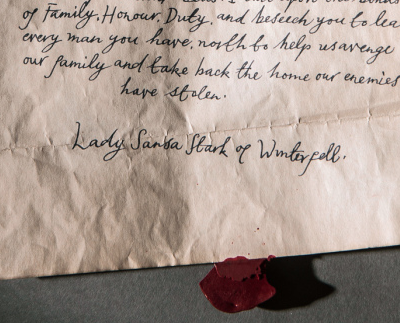 of Family, Honour, Duty, and beseech you to lea
every man you have, north to help us avenge
our family and take back the home our enemies
have stolen.
Lady Sansa Stark of Winterfell.